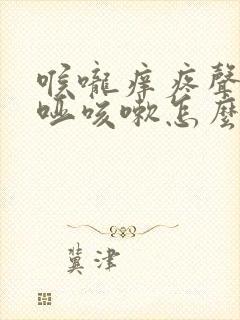 喉嚨痒疼聲
啞咳嗽怎麼
冀津